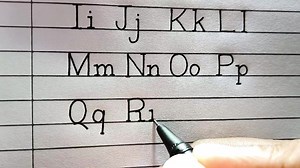 Ii Jj Kk Ll
Mm Nn Oo Pp
Qq Rr